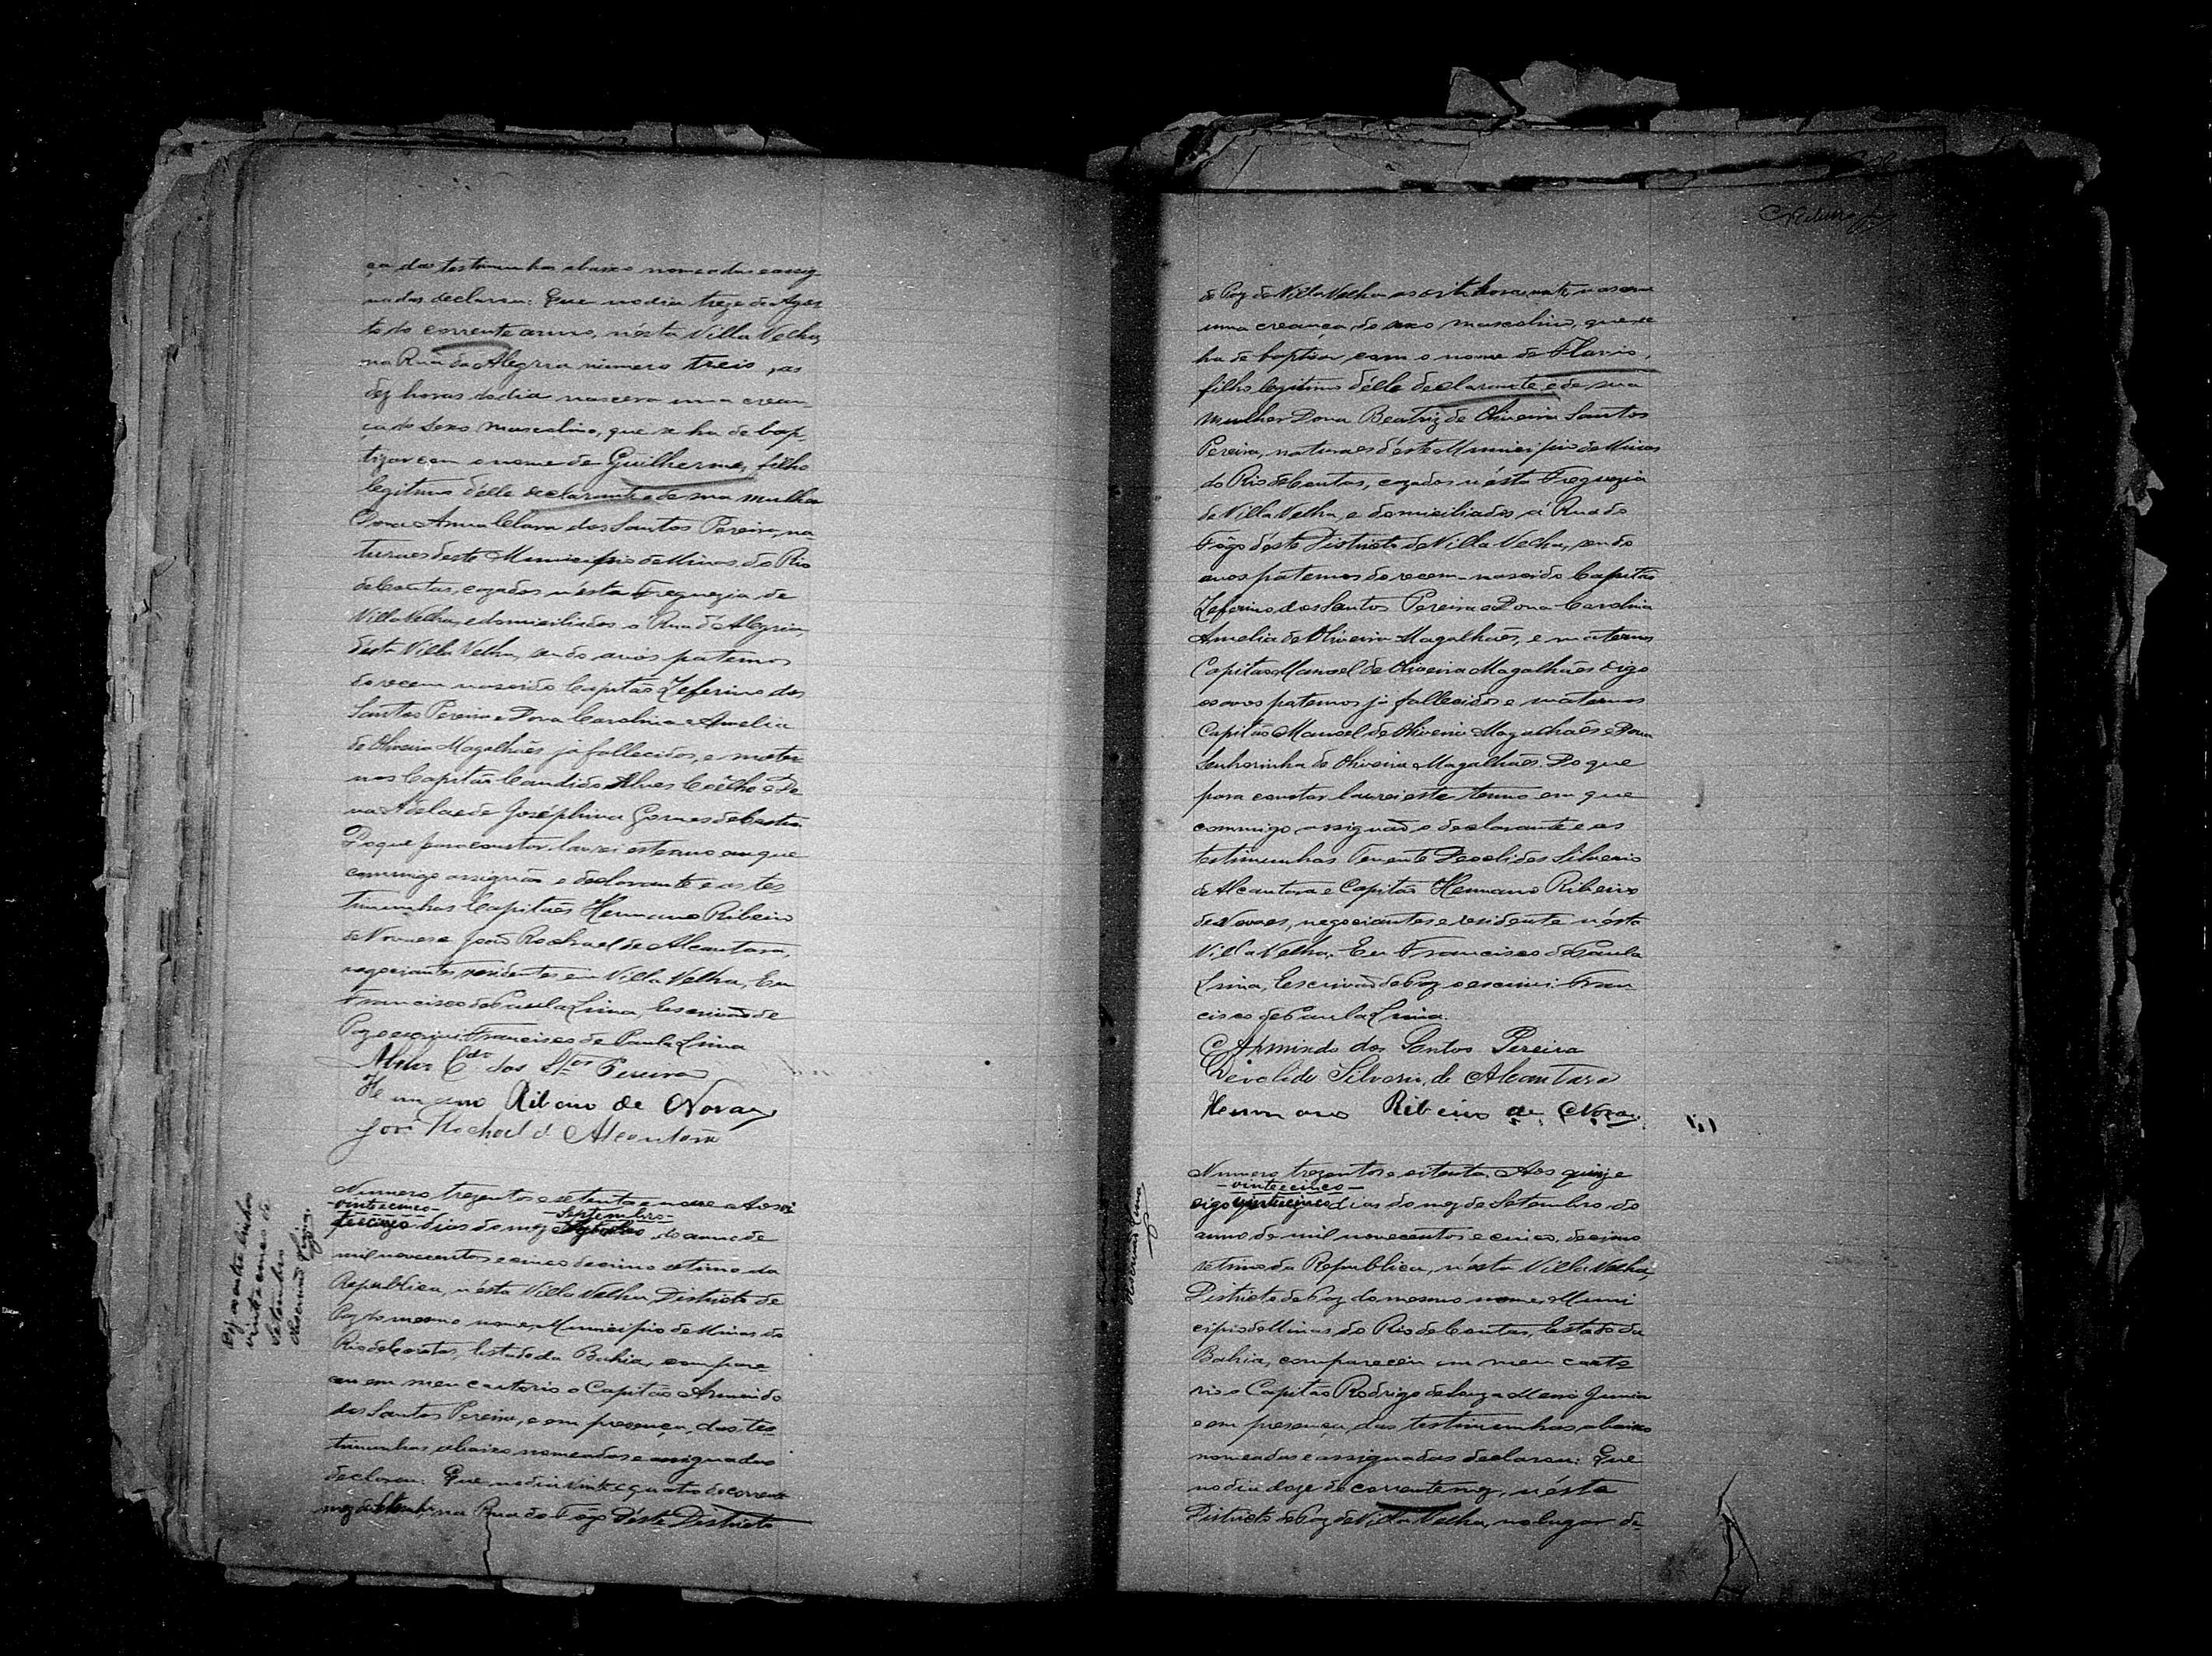 ça das testemunhas abaixo nomeadas e assig
nadas declarou: Que no dia treze de Agos
to do corrente anno, n'ésta Villa Velha,
na Rua da Alegria numero treis, as
dez horas do dia nascera uma crean_
ça do sexo masculino, que se ha de bap_
tizar com o nome de Guilherme, filho
legitimo d'élle declarante e de sua mulher
Dona Anna Clara dos Santos Pereira, na
turaes deste Municipio de Minas do Rio
de Contas, cazados n'ésta Freguezia de
Villa Velha, e domiciliados a Rua d'Alegria,
desta Villa Velha, sendo avós paternos
do recem nascido Capitão Zeferino dos
Santos Pereira e Dona Carolina Amelia
de Oliveira Magalhães já fallecidos, e mater
nos Capitão Candido Alves Coêlho e Do
na Adelaede Joséphina Gomes de Castro
Do que para constar lavrei este termo em que
commigo assignão o declarante e as tes
timunhas Capitães Hermano Ribeiro
de Novaes e José Rachael de Alcantara,
negociantes, residentes em Villa Velha, Eu
Francisco de Paula Lima, Escrivão de
Paz o escrivi Francisco de Paula Lima
dos Stos Pereira
Hermano Ribeiro de Novaes
José Rachael d' Alcantara
Numero trezentos e setenta e nove Aos vi
-vintecinco- -Septembro-
dias do mez do anno de
mil novecentos e cinco decimo setimo da
Republica, n'ésta Villa Velha, Districto de
Paz do mesmo nome, Municipio de Minas do
Rio de Contas, Estado da Bahia, compare
ceu em meu cartorio o Capitão Armindo
dos Santos Pereira, e em presença das tes
timunhas abaixo nomeadas e assignadas
declarou: Que no dia vinte e quatro do corrente
mez de Setembro na Rua do Fôgo d'éste Districto
vinte e cinco de
Setembro
O Escrivão Lima
de Paz de Villa Velha as oito horas nascera
uma creança do sexo masculino, que se
ha de baptizar com o nome de Flavio,
filho legitimo d'élle declarante e de sua
mulher Dona Beatriz de Oliveira Santos
Pereira, naturaes d'éste Municipio de Minas
do Rio de Contas, cazados n'ésta Freguezia
de Villa Velha, e domiciliados á Rua do
Fôgo d'éste Districto de Villa Velha, sendo
avos paternos do recem-nascido Capitão
Zeferino dos Santos Pereira e Dona Carolina
Amelia de Oliveira Magalhães, e maternos
Capitão Manoel de Oliveira Magalhães digo
os avos paternos já fallecidos e maternos
Capitão Manoel de Oliveira Magalhães e Dona
Senhorinha de Oliveira Magalhães. Do que
para constar lavrei este termo em que
commigo assignão o declarante e as
testimunhas Tenente Deoclides Silverio
de Alcantara e Capitão Hermano Ribeiro
de Novaes, negociantes e residente n'ésta
Villa Velha. Eu Francisco de Paula
Lima, Escrivão de Paz o escrivi Fran
cisco de Paula Lima.
Armindo dos Santos Pereira
Silverio de Alcantara
Hermano Ribeiro de Novaes
Numero trezentos e oitenta Aos quinze
-vintecinco-
digo dias do mez de Setembro do
anno de mil novecentos e cinco, decimo
setimo da Republica, n'ésta Villa Velha,
Districto de Paz do mesmo nome, Muni
cipio de Minas do Rio de Contas, Estado da
Bahia, compareceu em meu carto
rio o Capitão Rodrigo de Souza Meira Junior
e em presença das testimunhas abaixo
nomeadas e assignadas declarou: Que
no dia doze do corrente mez, n'ésta
Districto de Paz de Villa Velha, no lugar de